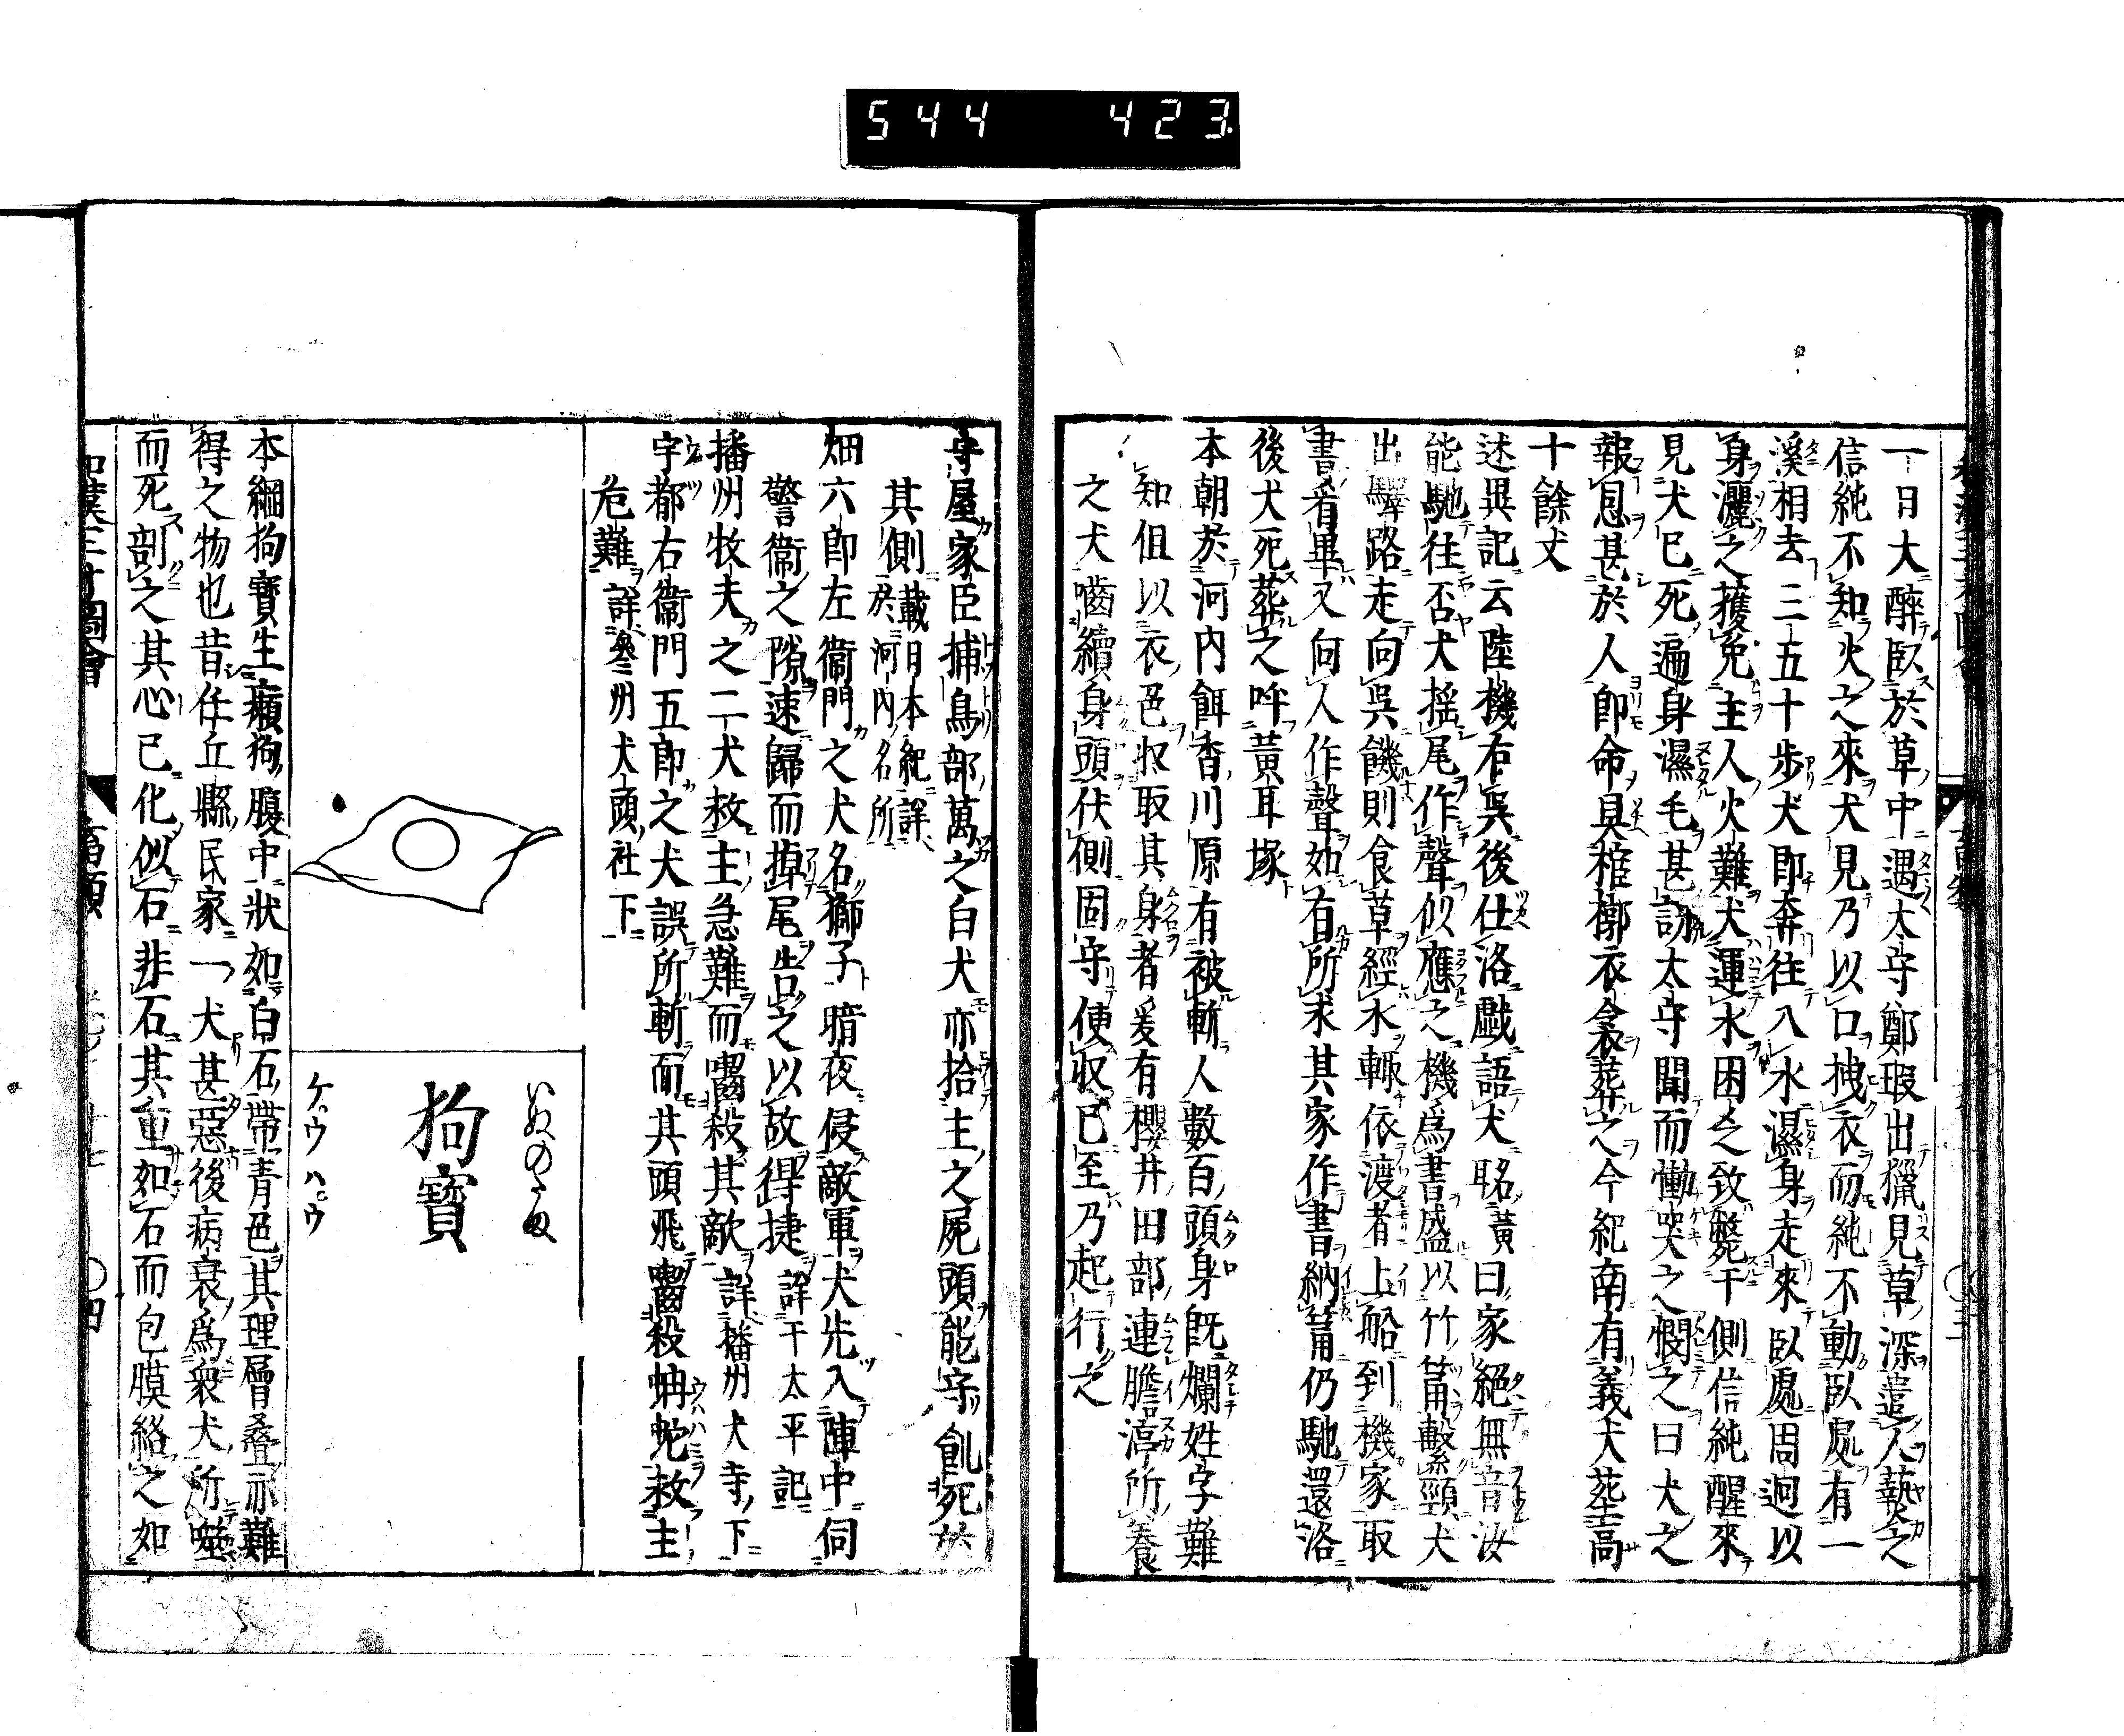 544 423
一日大醉臥於草中遇太守鄭瑕出獵見草深遣人爇之
信純不知火之來犬見乃以口拽衣而純不動臥處有一
溪相去三五十步犬即奔往入水濕身走來臥處周迴以
身灑之獲免主人火難犬運水困乏致斃于側信純醒來
見犬已死遍身濕毛甚訝太守聞而慟哭之憫之曰犬之
報恩甚於人即命具棺槨衣衾葬之今紀南有義犬塟高
十餘丈
述異記云陸機在吳後仕洛戲語犬名黃曰家絕無音汝
能馳往否犬搖尾作聲似應之機爲書盛以竹筩繫頸犬
出驛路走向吳饑則食草經水輙依渡者上船到機家取
書看畢又向人作聲如有所求其家作書納筩仍馳還洛
後犬死葬之呼黃耳塚
本朝於河内餌香川原有被斬人數百頭身既爛姓字難
知但以衣色収取其身者爰有櫻井田部連膽渟所養
之犬嚙續身頭伏側固守使収已至乃起行之
守屋家臣捕鳥部萬之白犬亦拾主之屍頭能守飢死於
其側載日本紀詳於河内名所
畑六郎左衞門之犬名獅子暗夜侵敵軍犬先入陣中伺
警衞之隙速歸而掉尾告之以故得捷詳于太平記
播州牧夫之二犬救主急難而嚙殺其敵詳播州犬寺下
宇都右衞門五郎之犬誤所斬而其頭飛嚙殺蚺蛇救主
危難詳參州犬頭社下
いぬのたま
狗寶
ケ゜ウ ハ゜ウ
本綱狗寶生癩狗腹中狀如白石帶青色其理層叠亦難
得之物也昔任丘縣民家一犬甚惡後病衰爲衆犬所噬
而死剖之其心已化似石非石其重如石而包膜絡之如
和漢三才圖會 畜類 〇四